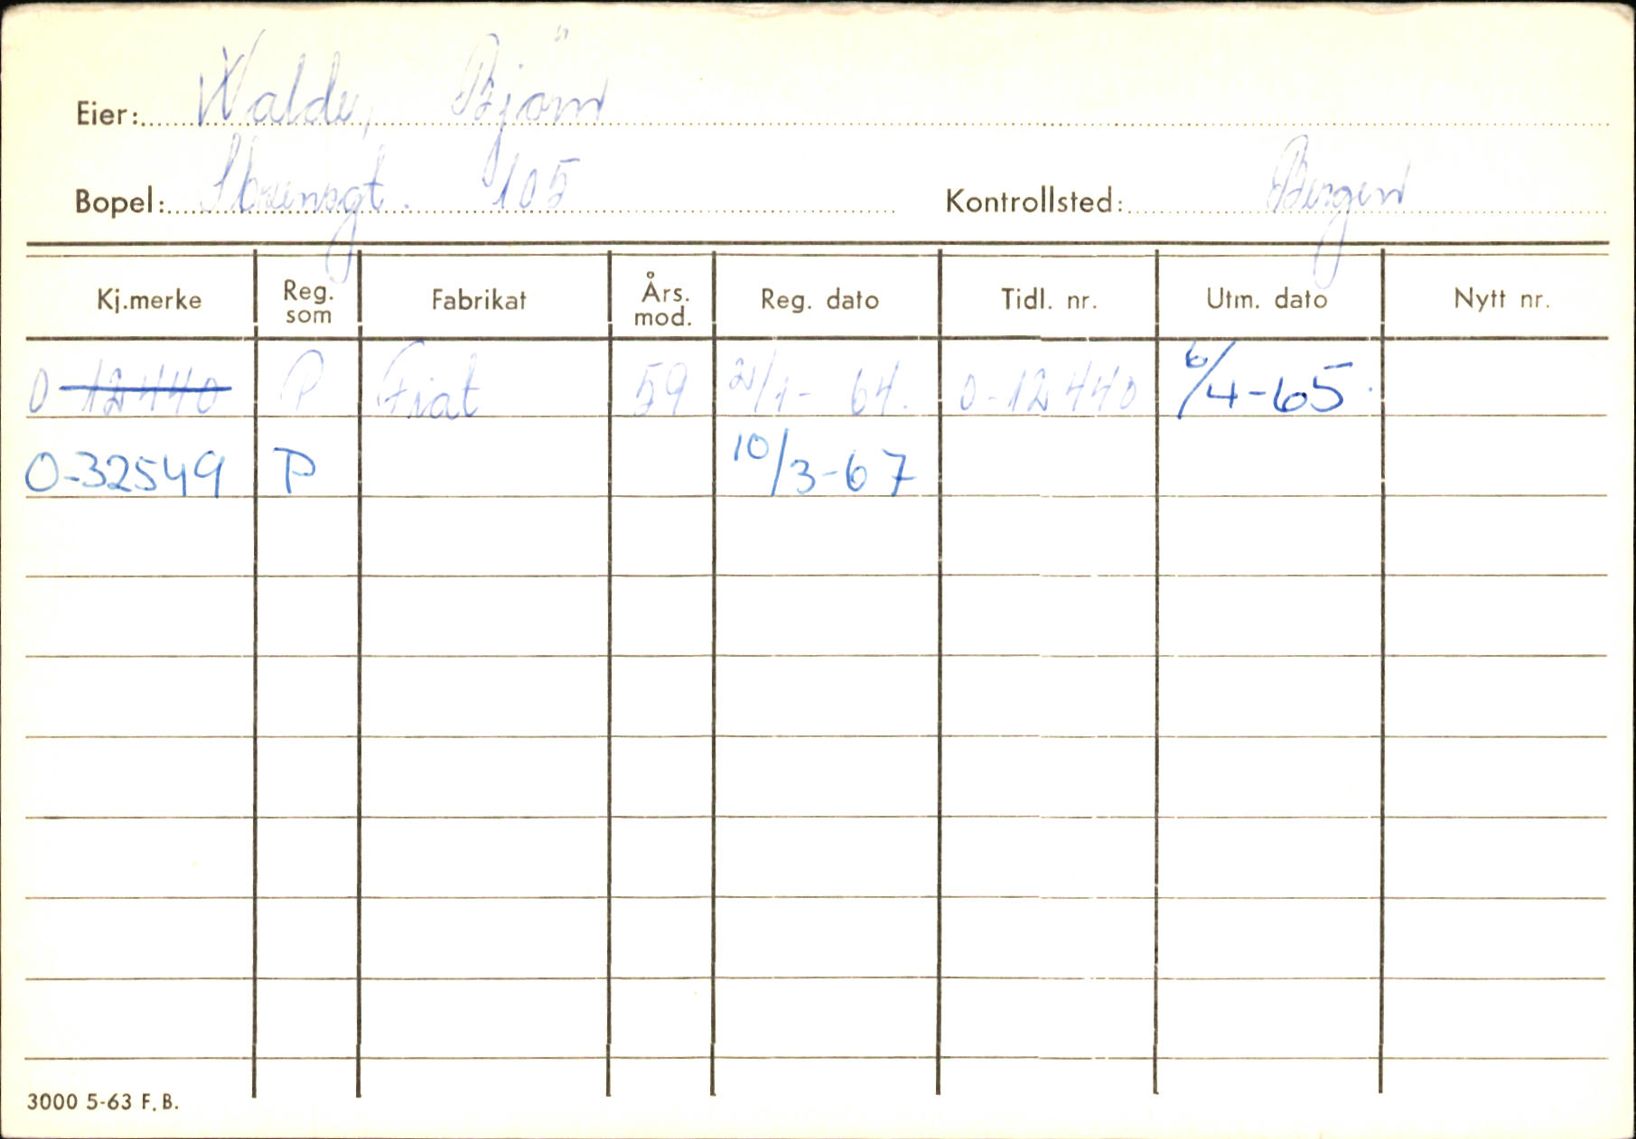 Eier: Walde, Björn
Bopel: Steensgt. 105 Kontrollsted: Bergen
Kj.merke Reg. som Fabrikat Års. mod. Reg. dato Tidl. nr. Utm. dato Nytt nr.
O-12440 P Fiat 59 21/1-64. O-12440 6/4-65.
O-32549 P 10/3-67
3000 5-63 F.B.